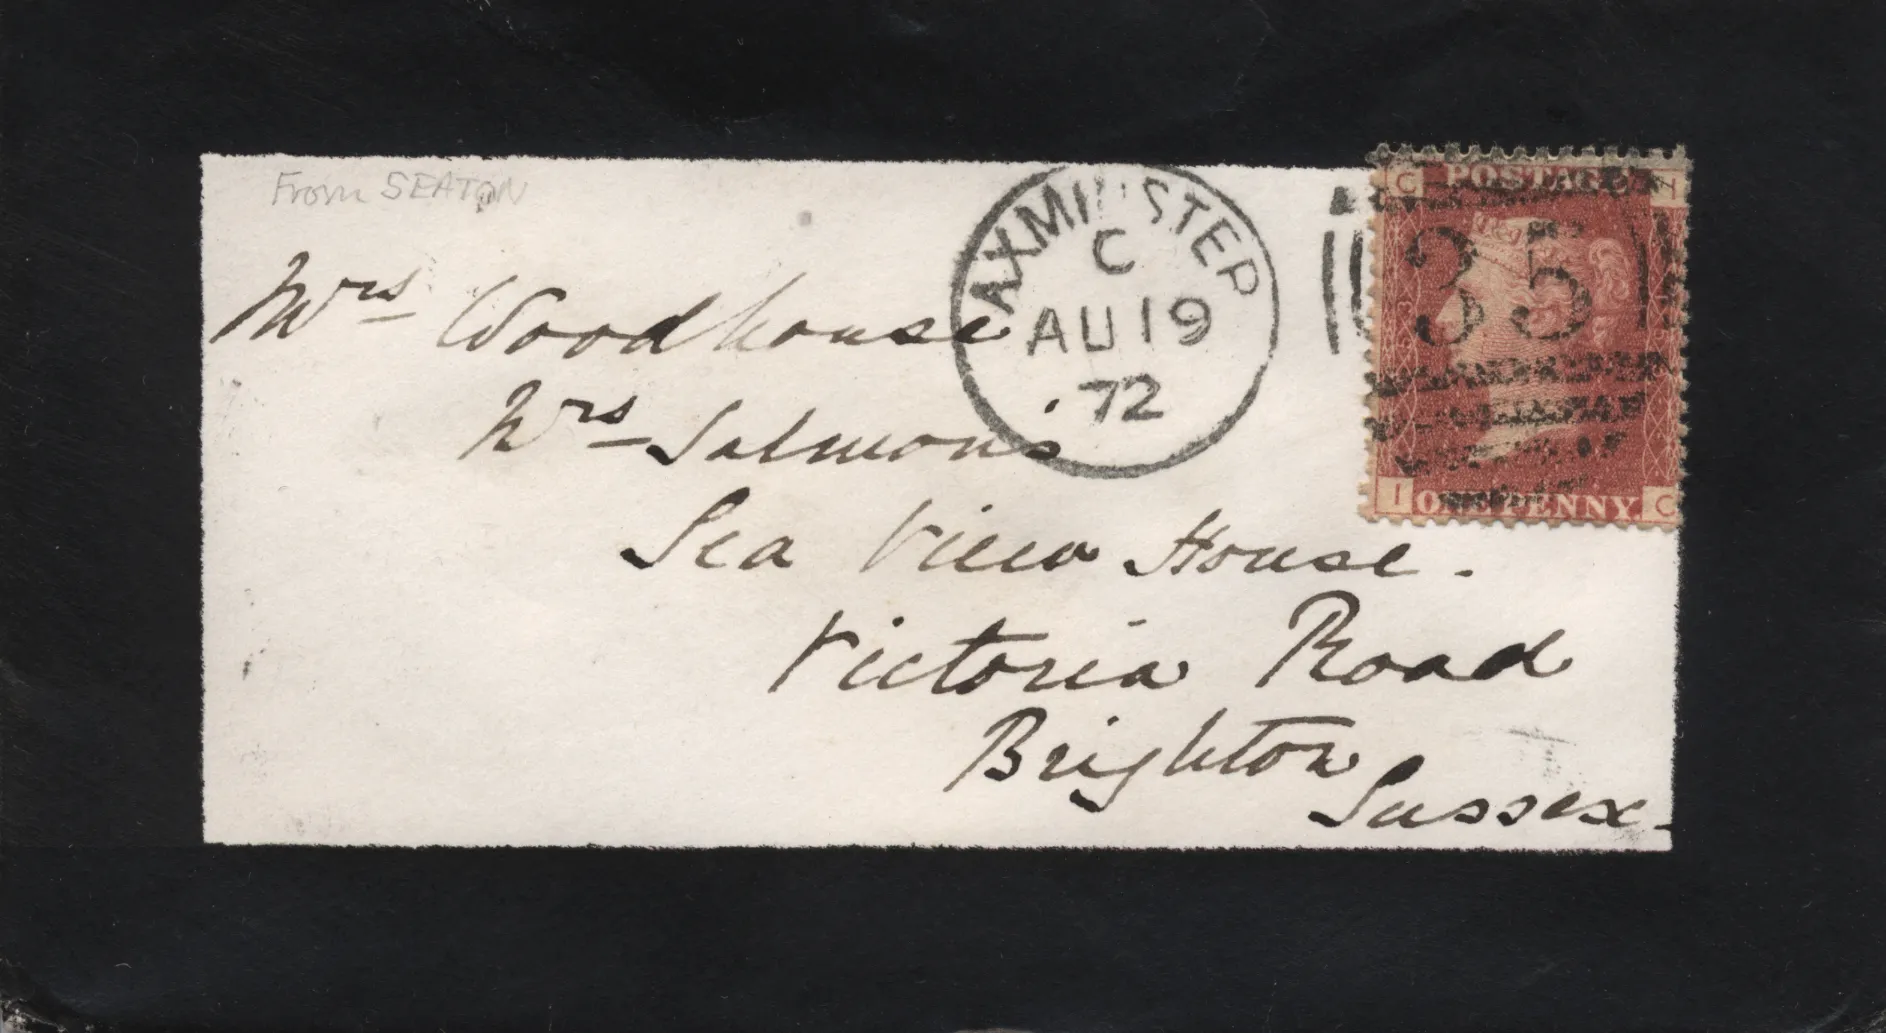 From SEATON
AXMINSTER
C
AU 19
72
C POSTAGE
35
I ONE PENNY. C
Mrs Woodhouse
Mrs Salmon's
Sea View House.
Victoria Road
Brighton
Sussex.